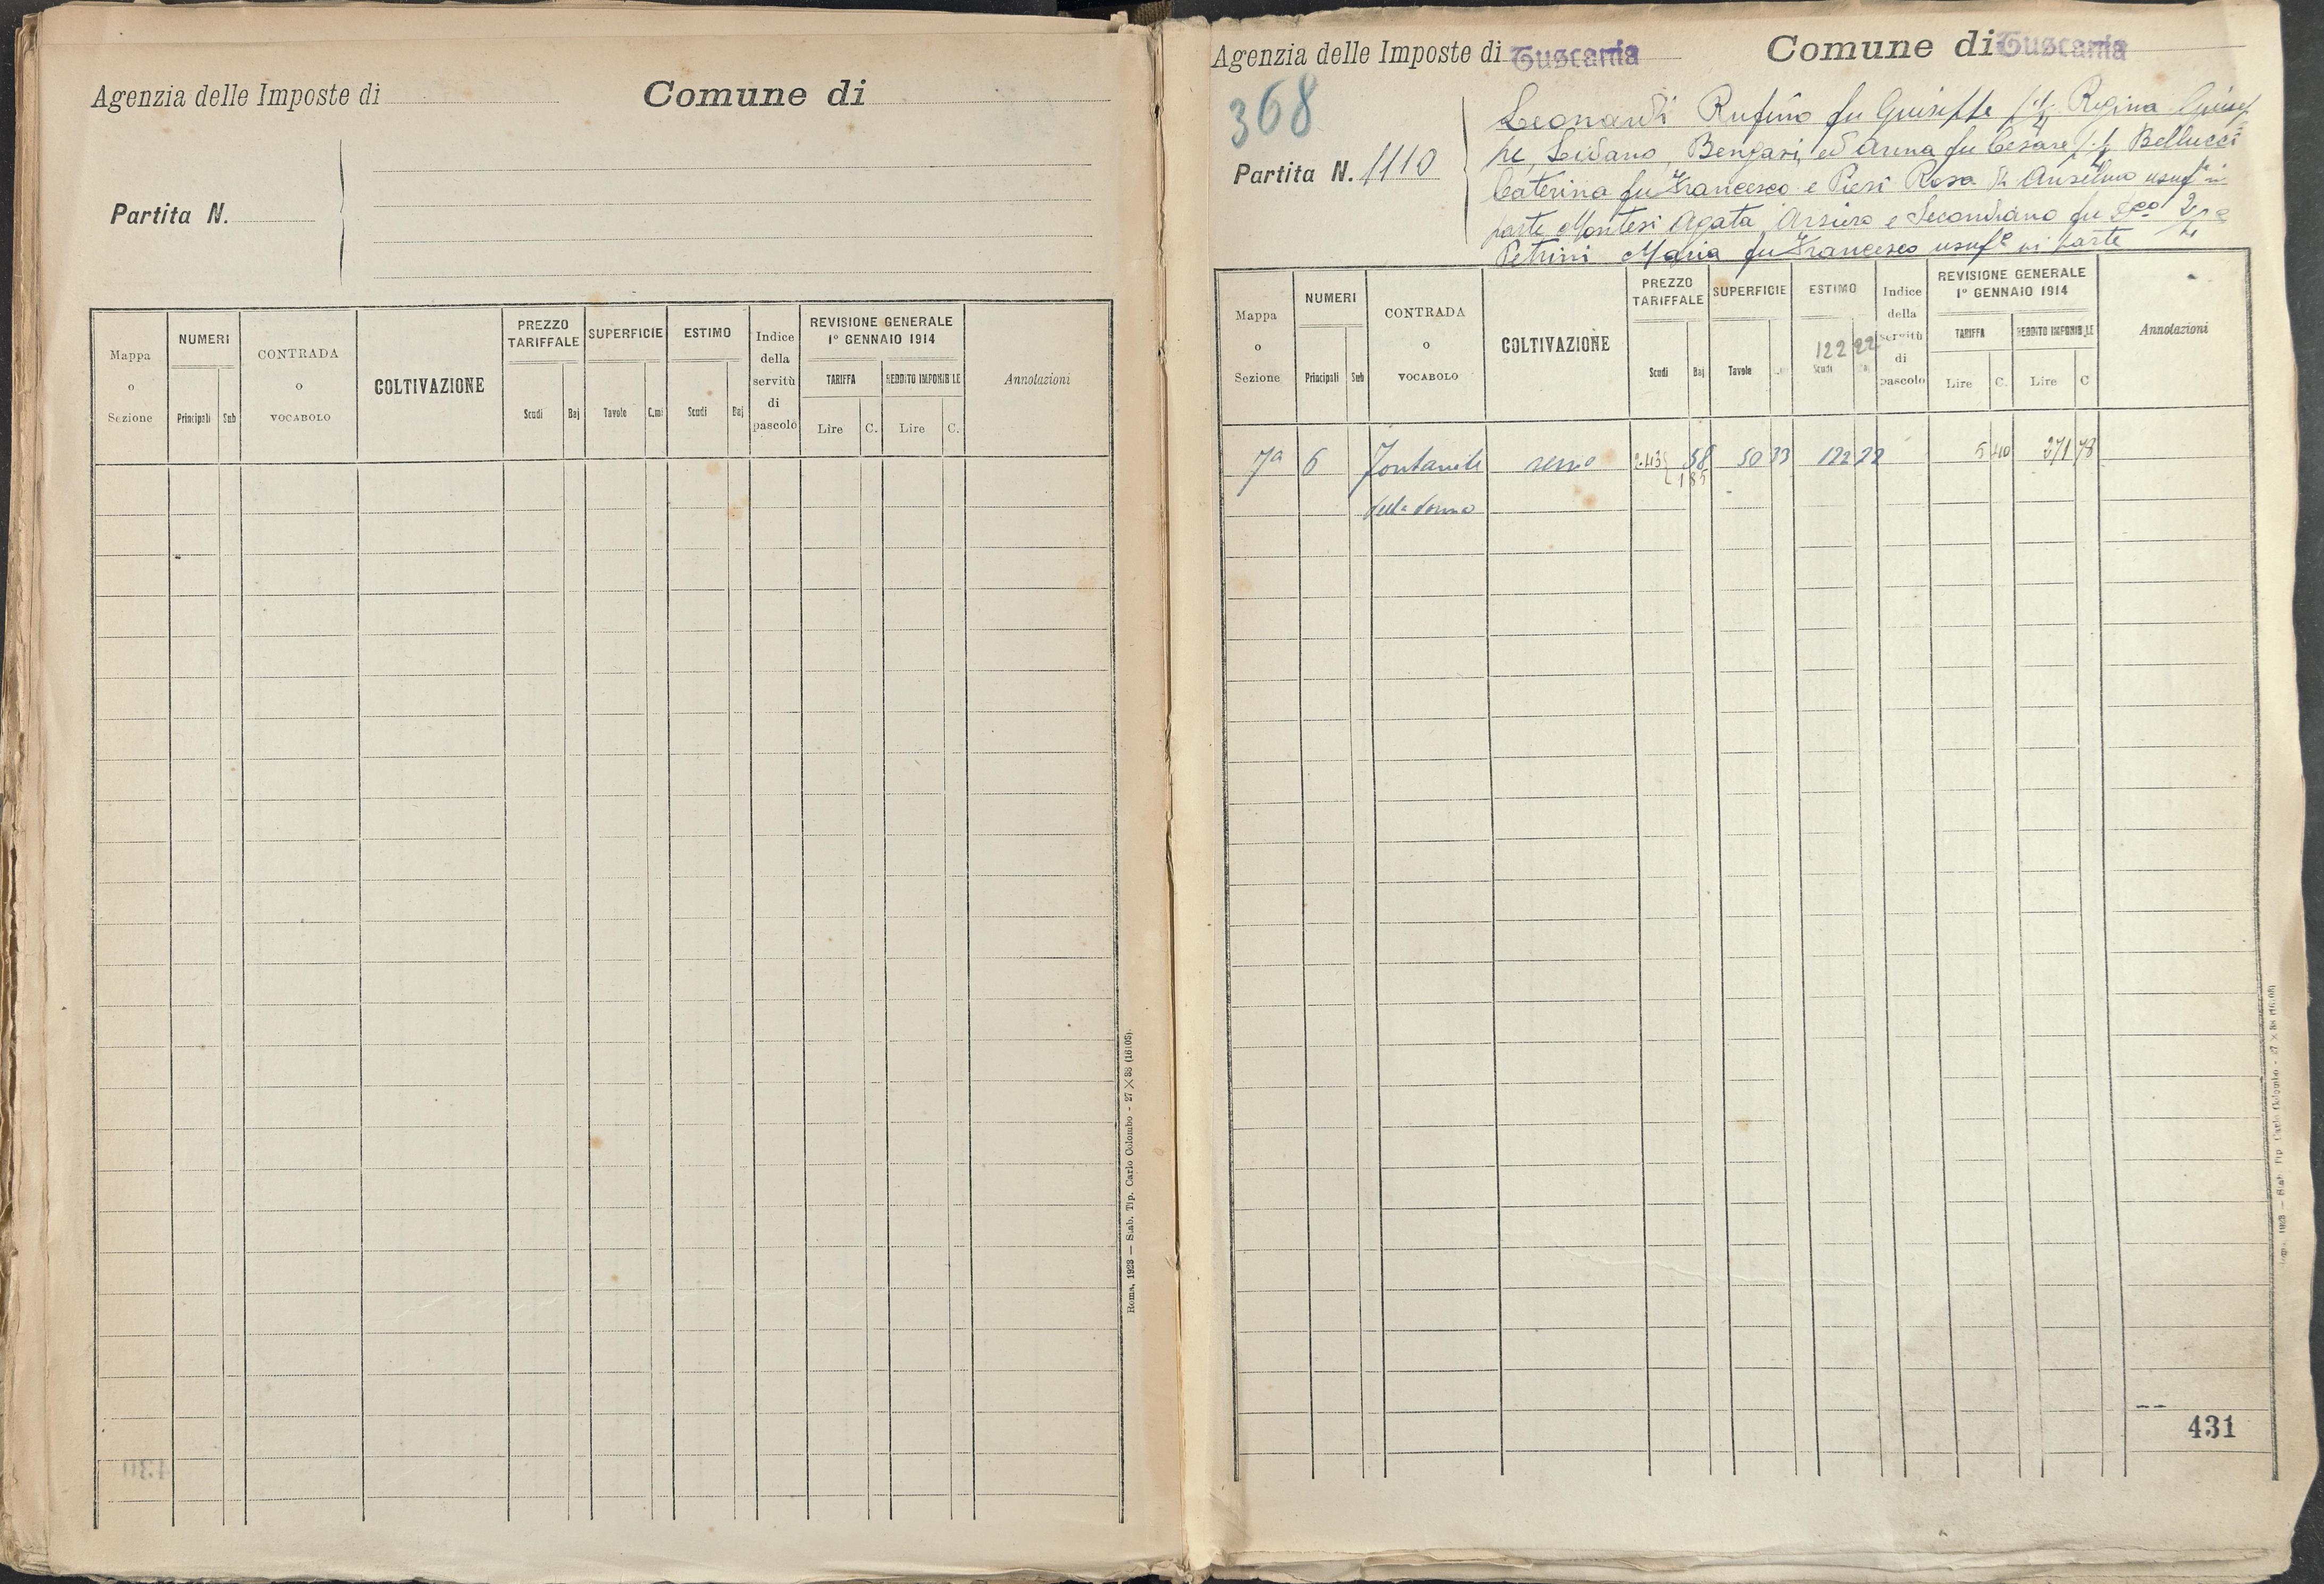 Agenzia delle Imposte di
Comune di
Partita N.
Mappa o Sezione
NUMERI
Principali
Sub
CONTRADA o VOCABOLO
COLTIVAZIONE
PREZZO TARIFFALE
Scudi
Baj
SUPERFICIE
Tavole
C.mi
ESTIMO
Scudi
Baj
Indice della servitù di pascolo
REVISIONE GENERALE
1° GENNAIO 1914
TARIFFA
REDDITO IMPONIBILE
Lire
C.
Lire
C.
Annotazioni
Roma, 1923 — Stab. Tip. Carlo Colombo - 27 × 38 (16108).
Agenzia delle Imposte di Tuscania
Comune di Tuscania
368
Partita N. 1110
Leonardi Rufino fu Giuseppe p. 1/4 Regina Giusep
pe, Bengasi, ed Anna fu Cesare p. 1/4 Bellucci
Caterina fu Francesco e Piesi Rosa di Anselmo usuf
parte Montesi Agata Arsiero e Secondiano fu
Petrini Maria fu Francesco usuf.e in parte
Mappa o Sezione
NUMERI
Principali
Sub
CONTRADA o VOCABOLO
COLTIVAZIONE
PREZZO TARIFFALE
Scudi
Baj
SUPERFICIE
Tavole
ESTIMO
122 22
Scudi
Baj
Indice della servitù di pascolo
REVISIONE GENERALE
1° GENNAIO 1914
TARIFFA
REDDITO IMPONIBILE
Lire
C.
Lire
C
Annotazioni
7a 6 Fontanile 2.43 58 50 33 122 22 5 40 271 78
della donna 185
431